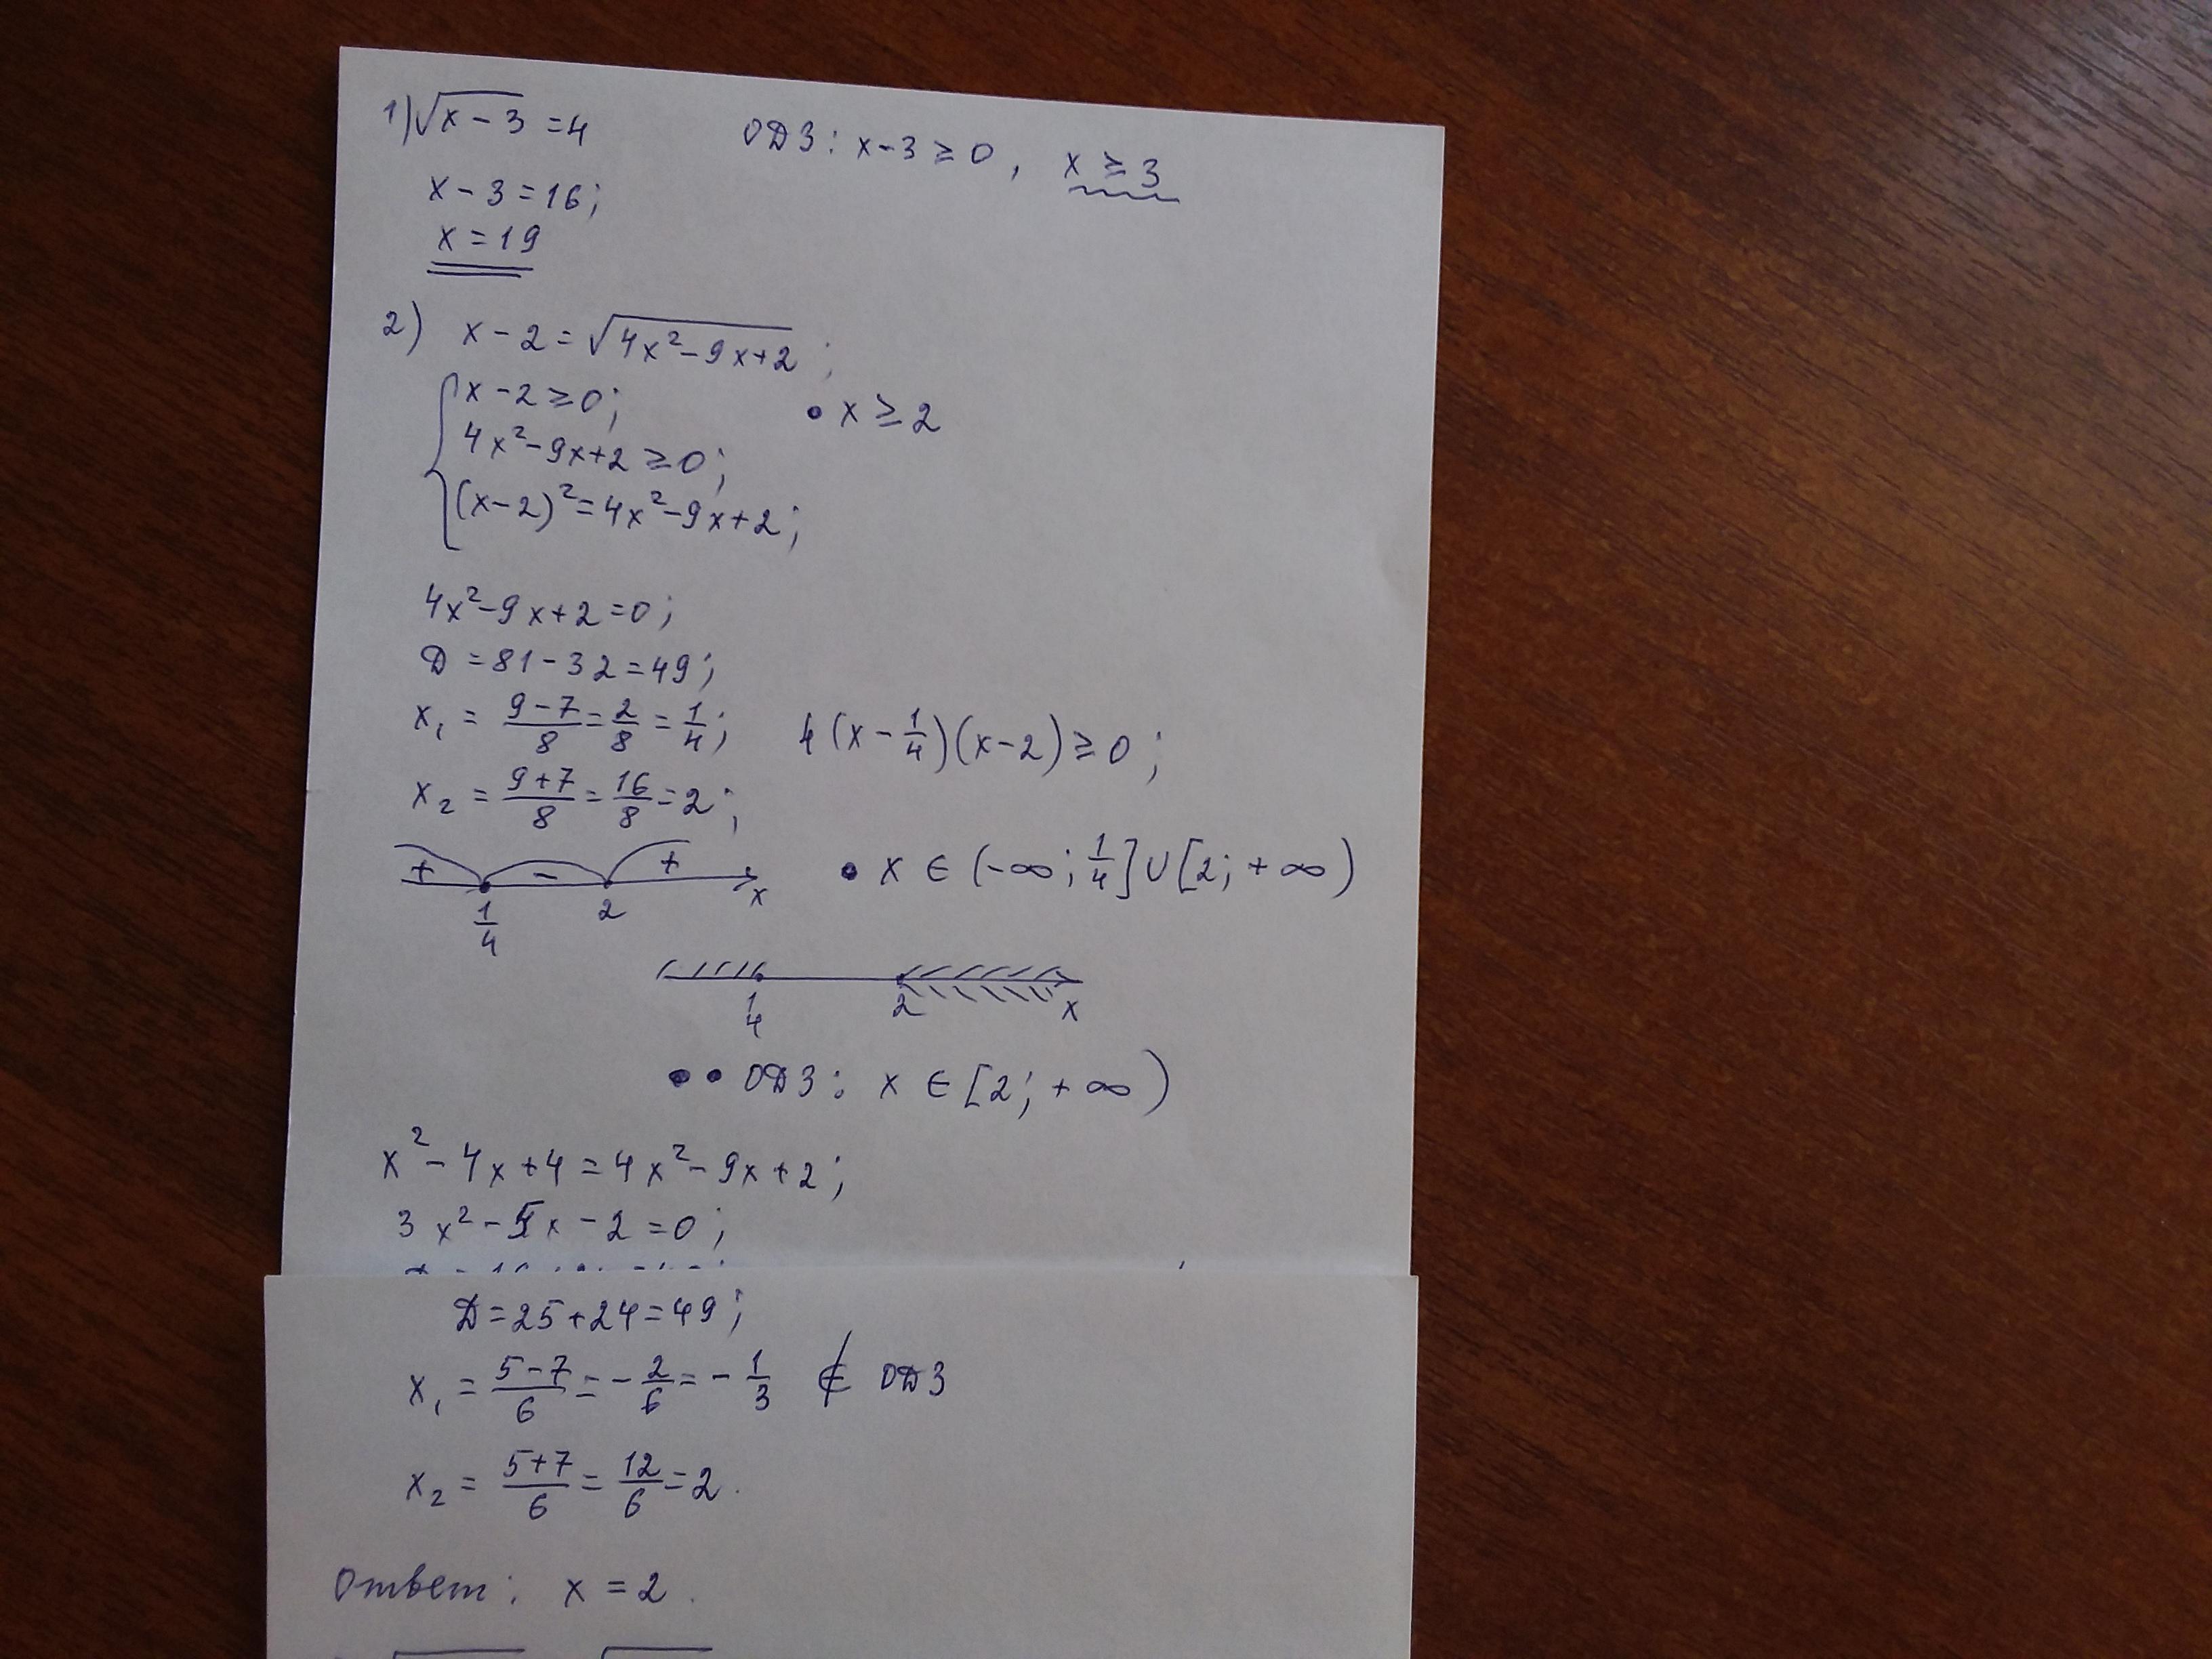 1) √x-3 = 4 ОДЗ: x-3 ≥ 0, x ≥ 3
x - 3 = 16;
x = 19
2) x - 2 = √4x²-9x+2;
x - 2 ≥ 0; • x ≥ 2
4x²-9x+2 ≥ 0;
(x-2)² = 4x²-9x+2;
4x²-9x+2 = 0;
D = 81-32 = 49;
x₁ = 9-7/8 = 2/8 = 1/4; 4(x - 1/4)(x-2) ≥ 0;
x₂ = 9+7/8 = 16/8 = 2;
+ - + x
1/4 2
• x ∈ (-∞; 1/4] ∪ [2; +∞)
1/4 2 x
• • ОДЗ: x ∈ [2; +∞)
x² - 4x + 4 = 4x² - 9x + 2;
3x² - 5x - 2 = 0;
D = 25+24 = 49;
x₁ = 5-7/6 = -2/6 = -1/3 ∉ ОДЗ
x₂ = 5+7/6 = 12/6 = 2.
Ответ: x = 2.